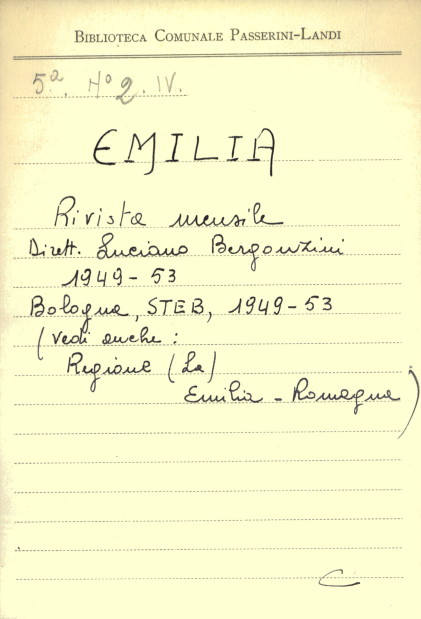 BIBLIOTECA COMUNALE PASSERINI-LANDI
5ª. Nº 2. IV.
EMILIA
Rivista mensile
Dirett. Luciano Bergonzini
1949-53
Bologna, STEB, 1949-53
(vedi anche:
Regione (La)
Emilia-Romagna)
C